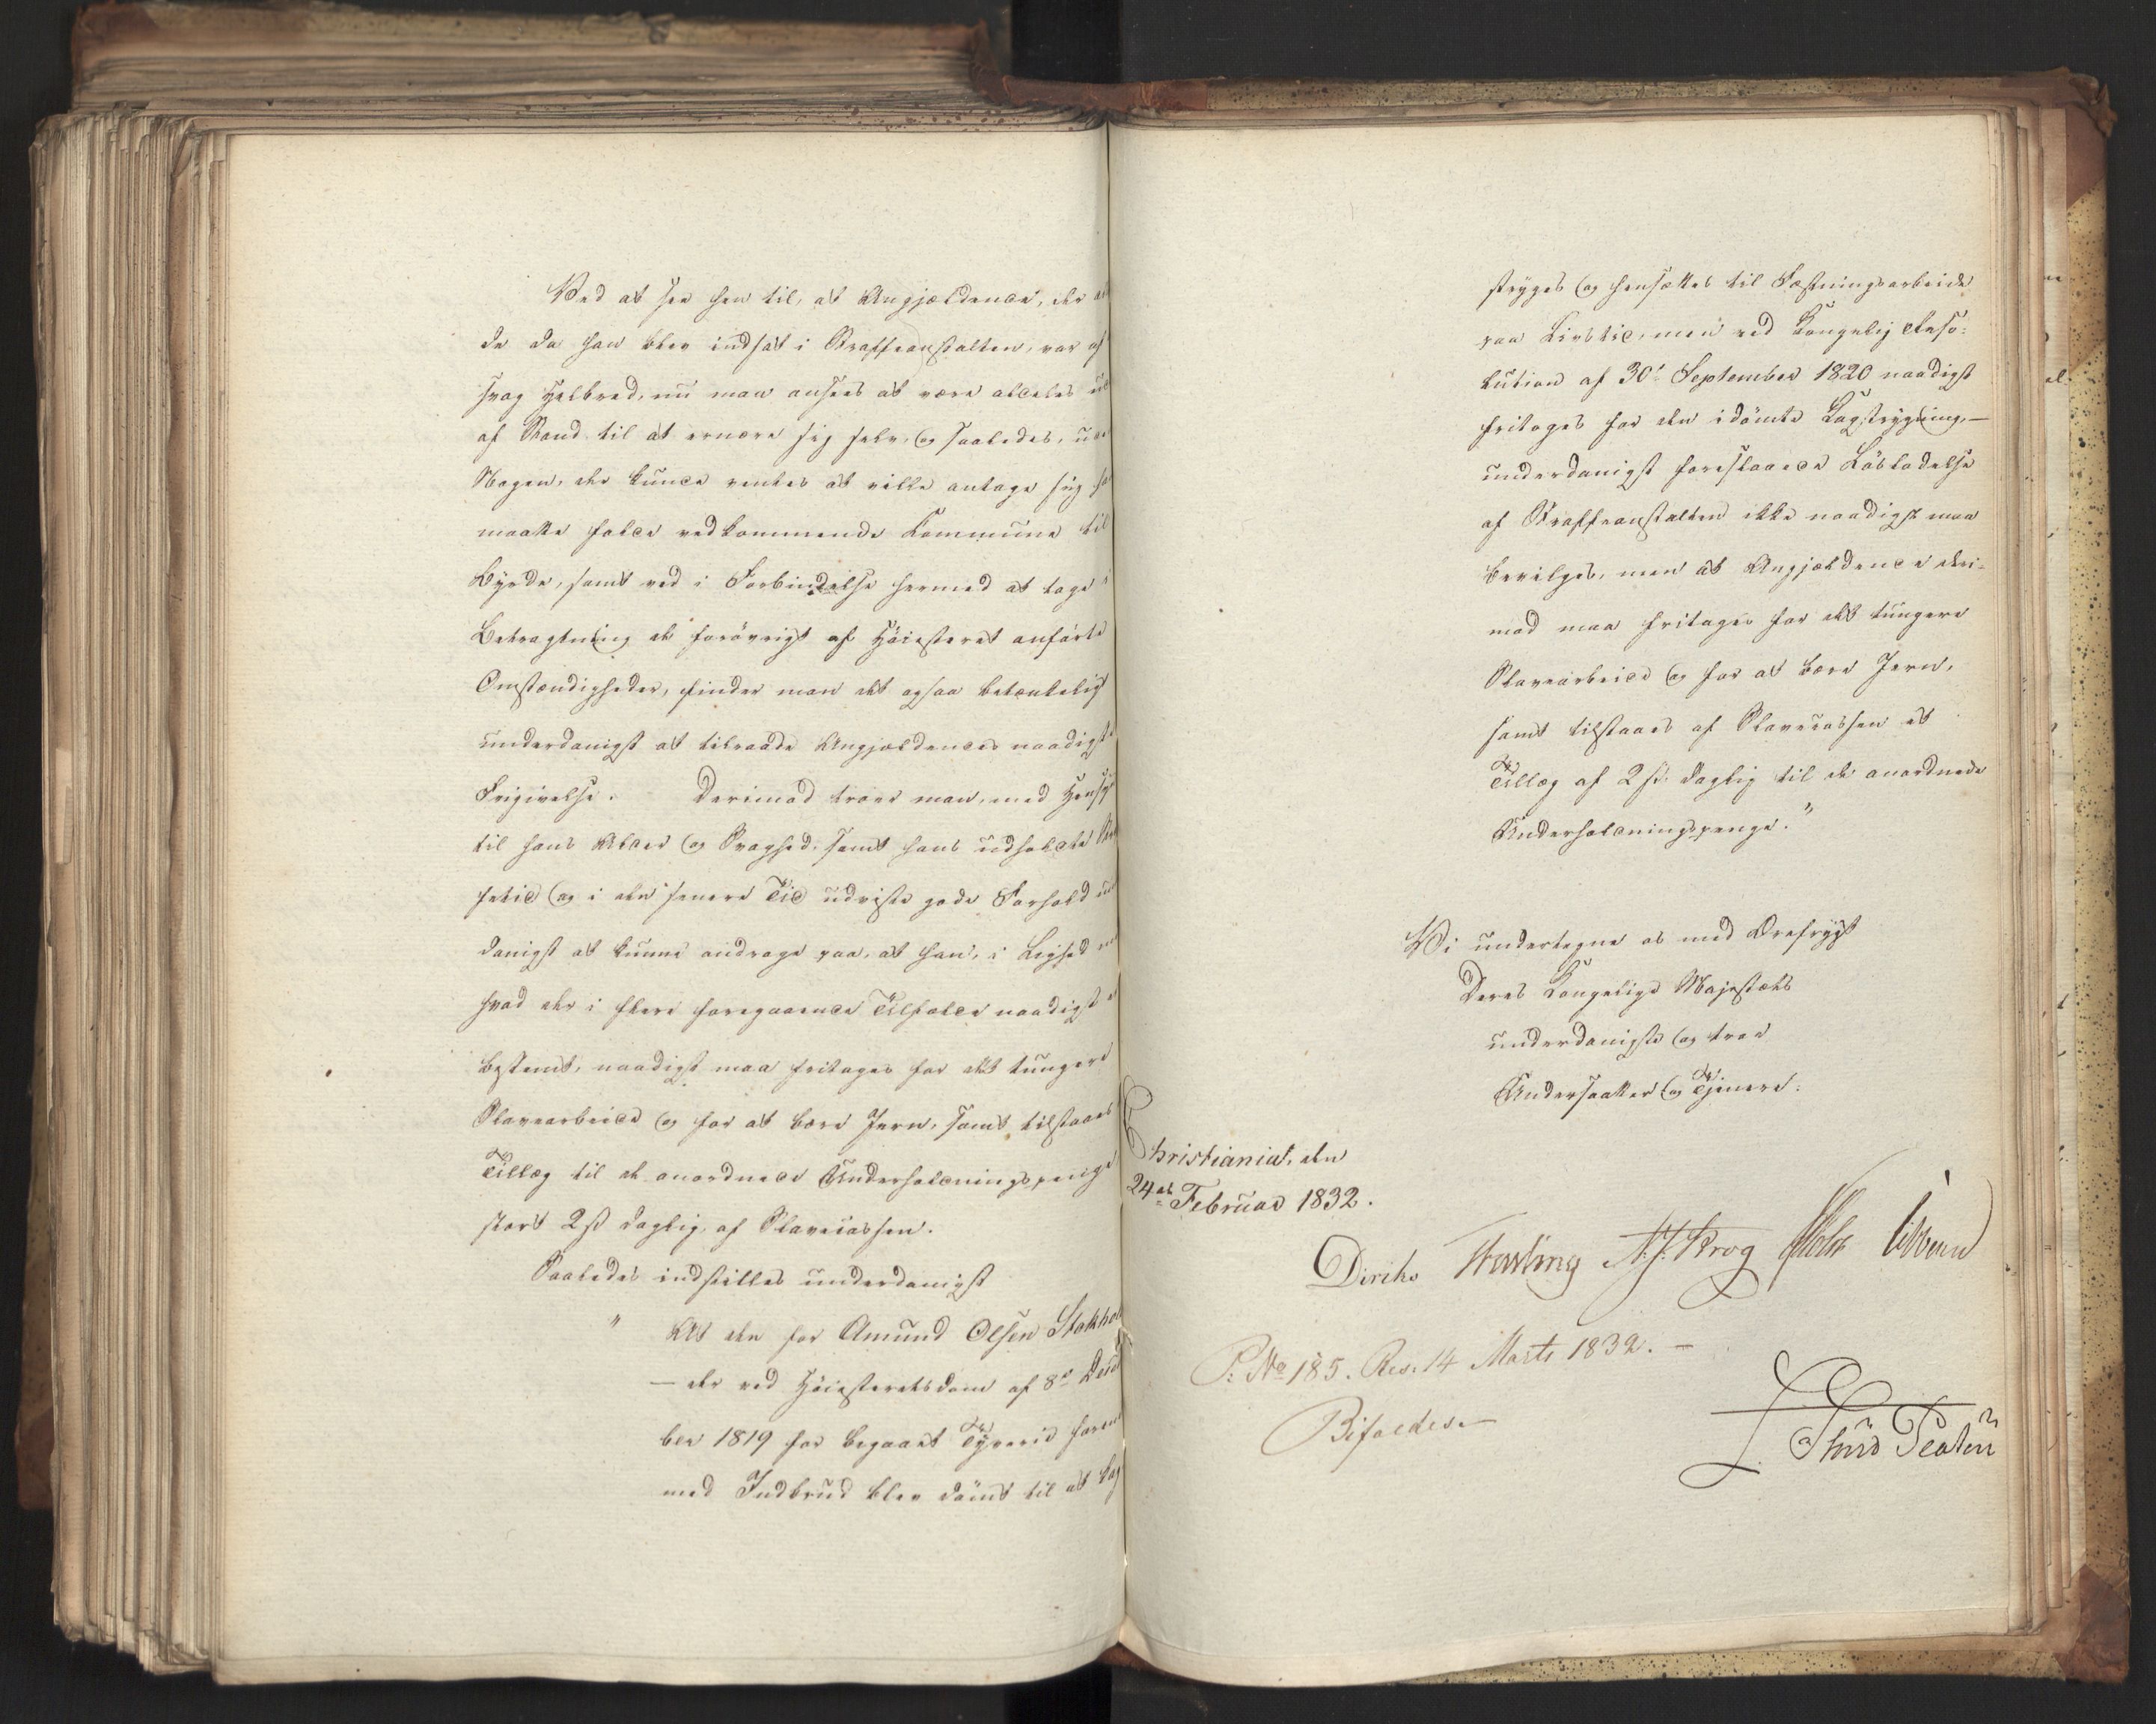 Ved at see hen til, at Angjældende, der al
de da han blev indsat i Straffeanstalten, var af
svag Helbred, nu maa ansees at være aldeles ud
af Stand til at ernære sig selv, og saaledes, uden
Nogen, der kunde ventes at ville antage sig ha
maatte falde vedkommende Kommune til
Byrde, samt ved i Forbindelse hermed at tage i
Betragtning de forøvrigt af Høiesteret anførte
Omstændigheder, finder man det ogsaa betænkeligt
underdanigst at tilraade Angjældendes naadigste
Frigivelse. Derimod troer man, med Hensyn
til hans Alder og Svaghed, samt hans udholdte
setid og i den senere Tid udviste gode Forhold un
danigst at kunne andrage paa, at han, i Lighed
hvad der i flere foregaaende Tilfælde naadigst er
bestemt, naadigst maa fritages for det tungere
Slavearbeide og for at bære Jern, samt tilstaaes
Tillæg til de anordnede Underholdningspenge
stort 2 ß daglig, af Slavekassen.
Saaledes indstilles underdanigst
" At den for Amund Olsen Stokhol
— der ved Høiesteretsdom af 8de Decem
ber 1819 for begaaet Tyverie foren
med Indbrud blev dømt til at kag
stryges og hensættes til Fæstningsarbeide
paa Livstid, men ved Kongelig Reso-
lution af 30te September 1820 naadigst
fritoges for den idømte Kagstrygning, —
underdanigst foreslaaede Løsladelse
af Straffeanstalten ikke naadigst maa
bevilges, men at Angjældende deri-
mod maa fritages for det tungere
Slavearbeide og for at bære Jern,
samt tilstaaes af Slavekassen et
Tillæg af 2 ß. daglig til de anordnede
Underholdningspenge."
Vi undertegne os med Ærefrygt
Deres Kongelige Majestæts
underdanigste og troe
Undersaatter og Tjenere.
Christiania, den
24de Februar 1832.
Diriks Hastling A. J. Krog Holst Vibben
P: No 185. Res. 14 Marts 1832. —
Bifaldes. —
Thure Peaten